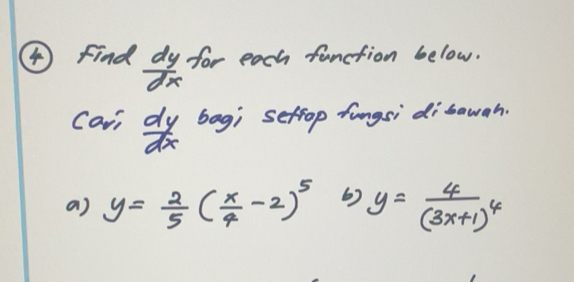 4 Find dy/dx for each function below.
Cari dy/dx bagi setiap fungsi di bawah.
a) y = 2/5 (x/4 - 2)^5 b) y = 4/(3x+1)^4